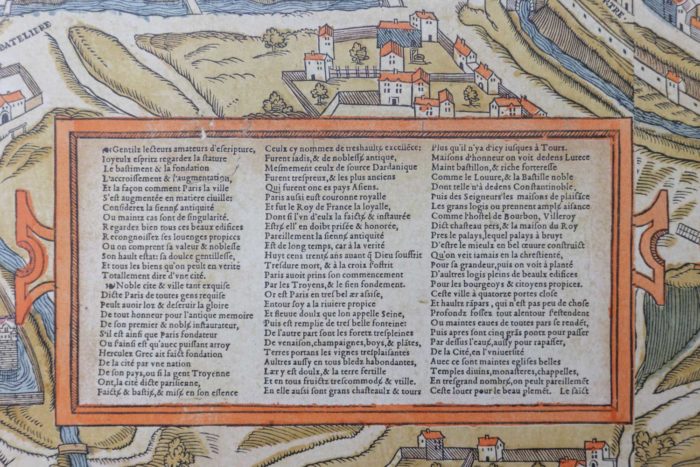 BATELIERE
Gentils lecteurs amateurs d'escripture,
Ioyeulx espritz regardez la stature
Le bastiment & la fondation
L'accroissement & l'augmentation,
Et la façon comment Paris la ville
S'est augmentée en matiere ciuille
Considerez la sienne antiquité
Ou maintz cas sont de singularité.
Regardez bien tous ces beaux edifices
Recongnoissez ses louenges propices
Ou on comprent sa valeur & noblesse
Son hault estat: sa doulce gentillesse,
Et tous les biens qu'on peult en verité
Totallement dire d'vne cité.
Noble cite & ville tant exquise
Dicte Paris de toutes gens requise
Peult auoir loz & deseruir la gloire
De tout honneur pour l'antique memoire
De son premier & noble instaurateur,
S'il est ainsi que Paris fondateur
Ou ainsi est qu'auec puissant arroy
Hercules Grec ait faict fondation
De la cité par vne nation
De son pays, ou si la gent Troyenne
Ont, la cité dicte parisienne,
Faicte & bastie, & mise en son essence
Ceulx cy nommez de treshaulte excellēce:
Furent iadis, & de noblesse antique,
Mesmement ceulx de source Dardanique
Furent trespreux, & les plus anciens
Qui furent onc es pays Asiens.
Paris aussi eut couronne royalle
Et fut le Roy de France la loyalle,
Dont si l'vn d'eulx la faicte & instaurée
Estre elle en doibt prisée & honorée,
Pareillement la sienne antiquité
Est de long temps, car à la verité
Huyt cens trente ans auant que Dieu souffrit
Tresdure mort, & à la croix s'offrit
Paris auoit prins son commencement
Par les Troyens, & le sien fondement.
Or est Paris en tresbel ær assise,
Entour soy a la riuiere propice
Et fleuue doulx que lon appelle Seine,
Puis est remplie de tresbelle fonteine:
De l'autre part sont les forets tresplaines
De venaison, champaignes, boys, & plātes,
Terres portans les vignes tresplaisantes
Aultres aussy en tous bledz habondante,
L'ær y est doulx, & la terre fertille
Et en tous fruictz trescommode & vtille.
En elle aussi sont grans chasteaulx & tours
Plus qu'il n'y a d'icy iusques à Tours.
Maisons d'honneur on voit dedens Lutece
Maint bastillon, & riche forteresse
Comme le Louure, & la Bastille noble
Dont telle n'a dedens Constantinoble,
Puis des Seigneurs les maisons de plaisance
Les grans logis on prennent amples aisance
Comme l'hostel de Bourbon, Villeroy
Dict chasteau pers, & la maison du Roy
Pres le palays, lequel palays à bruyt
D'estre le mieulx en bel œuure construict
Qu'on veit iamais en la chrestienté,
Pour sa grandeur, puis on voit à planté
D'autres logis pleins de beaulx edifices
Pour les bourgeoys & citoyens propices.
Ceste ville à quatorze portes close
Et haultz rāpars, qui n'est pas peu de chose
Profondz fossez tout alentour s'estendent
Ou maintes eaues de toutes pars se rendēt,
Puis apres sont cinq grās pontz pour passer
Par dessus l'eaue, aussy pour rapasser,
De la Cité, en l'vniuersité
Auec ce sont maintes eglises belles
Temples diuins, monasteres, chappelles,
En tresgrand nombre, on peult pareillemēt
Ceste louer pour le beau plemēt. Le faict